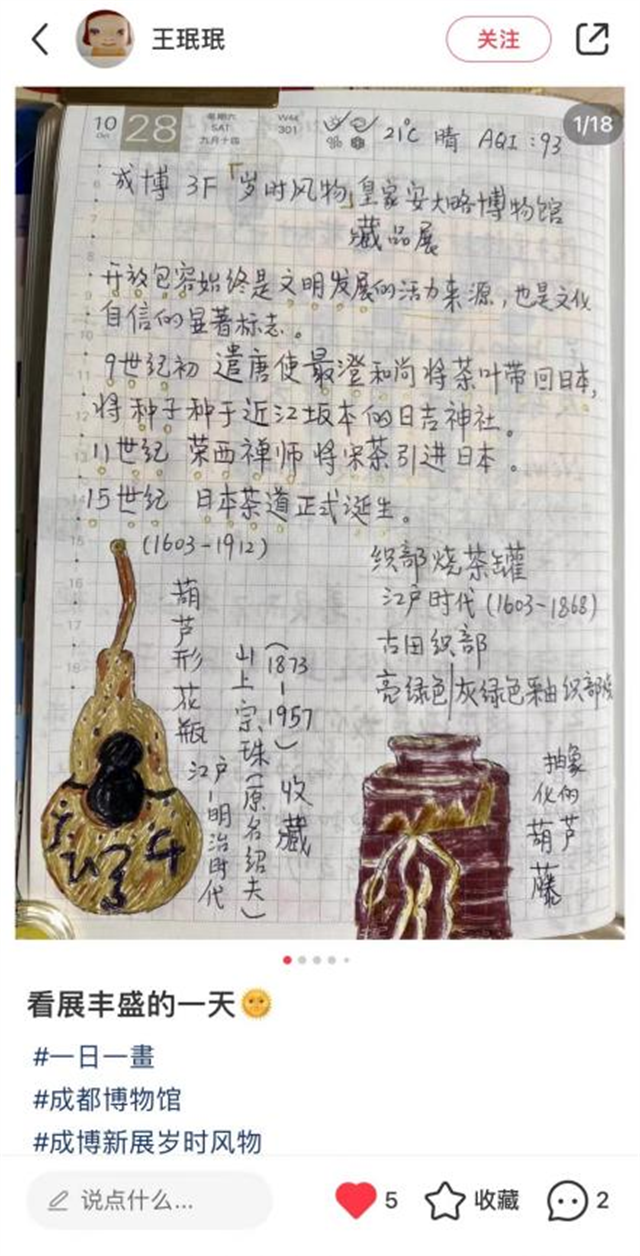 王珉珉
关注
1/18
10
Oct
28
星期六
SAT
九月十四
W44
301
21℃ 晴 AQI:93
成博 3F「岁时风物」皇家安大略博物馆
藏品展
开放包容始终是文明发展的活力来源,也是文化
自信的显著标志。
9世纪初 遣唐使最澄和尚将茶叶带回日本,
将种子种于近江坂本的日吉神社。
11世纪 荣西禅师将宋茶引进日本。
15世纪 日本茶道正式诞生。
(1603-1912)
葫芦形花瓶
江户-明治时代
山上宗珠(原名绍夫)
(1873-1957)收藏
织部烧茶罐
江户时代(1603-1868)
古田织部
亮绿色/灰绿色釉织部烧
抽象
化的
葫芦
藤
看展丰盛的一天🌞
#一日一畫
#成都博物馆
#成博新展岁时风物
说点什么...
5
收藏
2